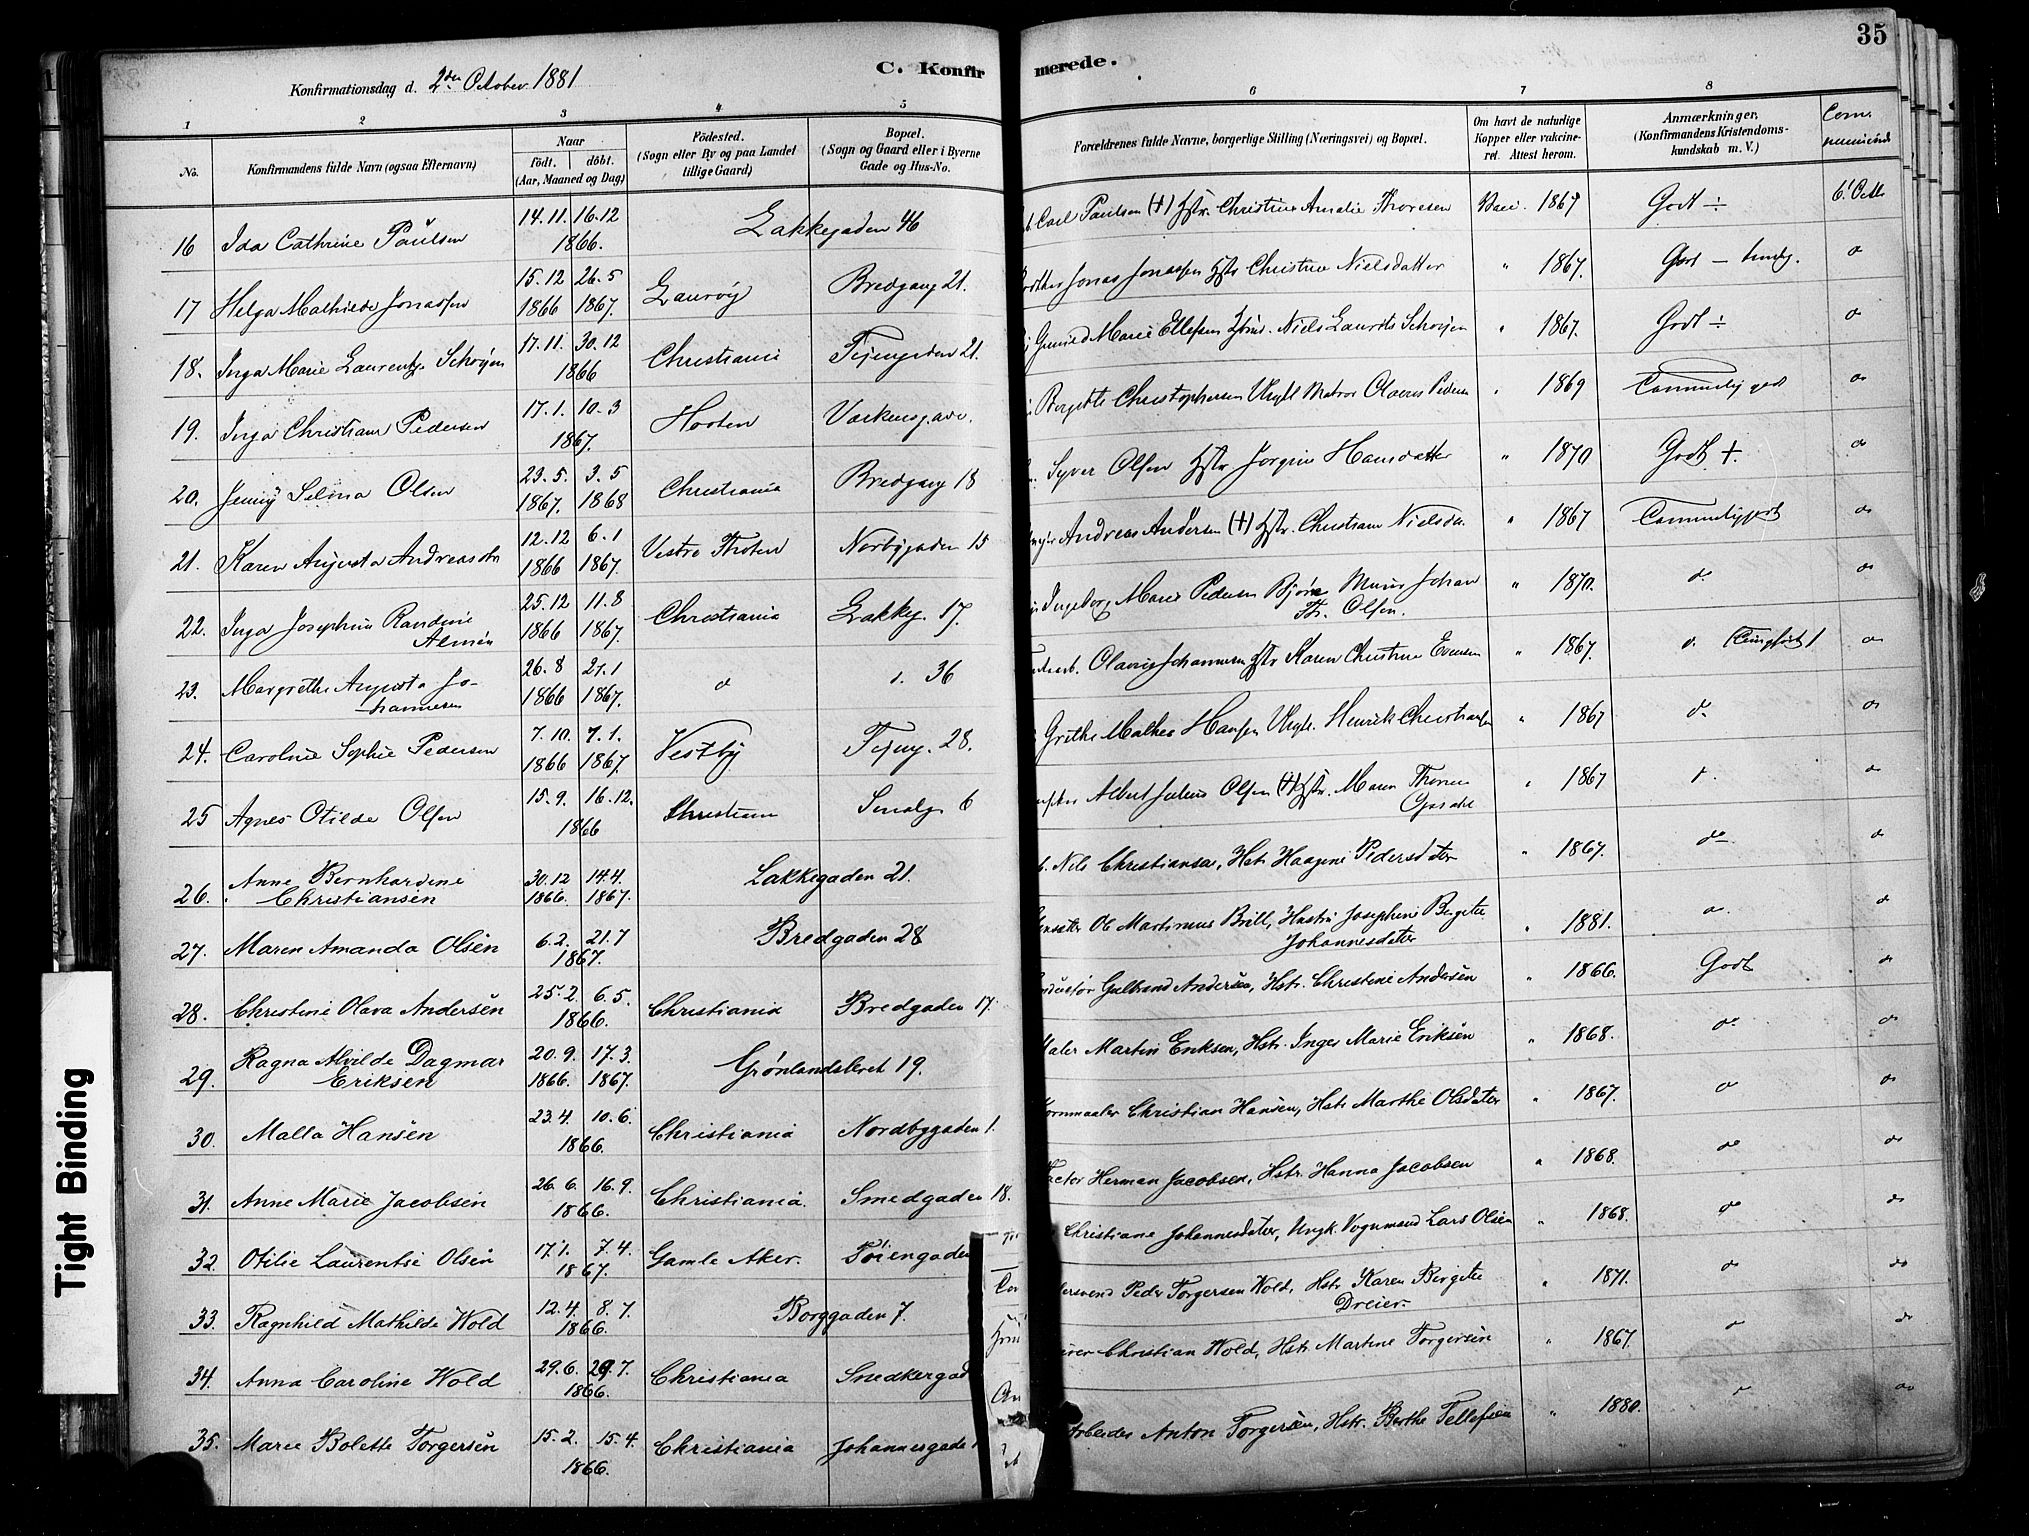 35
Konfirmationsdag d. 2den October 1881
C. Konfir
merede.
1 2 3 4 5 6 7 8
No.
Konfirmandens fulde Navn (ogsaa Efternavn)
Naar
födt. döbt.
(Aar, Maaned og Dag)
Födested.
(Sogn eller By og paa Landet
tillige Gaard)
Bopæl.
(Sogn og Gaard eller i Byerne
Gade og Hus-No.
Forældrenes fulde Navne, borgerlige Stilling (Næringsvei) og Bopæl.
Om havt de naturlige
Kopper eller vakcine-
ret. Attest herom.
Anmærkninger,
(Konfirmandens Kristendoms-
kundskab m. V.)
16 Ida Cathrine Paulsen 14.11. 16.12 1866. Lakkegaden 46 Carl Paulsen (+) Hstr. Christine Amalie Thoresen Vacc. 1867 Godt ÷ 6' Octb
17 Helga Mathilde Jonassen 15.12 1866 26.5 1867. Laurøy Bredgang 21. Jonas Jonassen Hstr Christine Nielsdatter " 1867. Godt — d
18. Inga Marie Laurentze Schoyen 17.11. 30.12 1866 Christiania Tøyengaden 21. Gunild Marie Ellefsen Niels Laurits Schoyen " 1867. Godt ÷ d
19. Inga Christiane Pedersen 17.1. 10.3 1867. Horten Christophersen Ungk Matros Pedersen " 1869 Temmelig godt do
20. Jenny Selma Olsen 23.5. 1867. 3.5 1868 Christiania Bredgang 18 Syver Olsen Hstr Jorgine Hansdatter " 1870 Godt +. do
21. Karen Augusta Andreasdtr 12.12 1866 6.1 1867. Vestre Thoten Norbygaden 15 Andreas Andersen (+) Hstr. Christiane Nielsdr. " 1867 Temmelig godt do
22. Inga Josephine Randine 25.12 1866 11.8 1867. Christiania Lakkeg. 17. Ingeborg Marie Pedersen Bjørn Johan " 1870. do do
Th. Olsen.
23. Margrethe Augusta Jo- 26.8 1866 21.1 1867. d d. 36 Olavus Johannesen Hstr Karen Christine Evensen " 1867. do
hannesen
24. Caroline Sophie Pedersen 7.10. 1866 7.1. 1867. Vestby Tøyeng. 28. Grethe Mathea Hansen Ungk. Henrik Christiansen " 1867 do do
25 Agnes Otilde Olsen 15.9. 16.12. 1866 Christiania Smalg 6 Albert Julius Olsen (+) Hstr. Maren Thorine " 1867 d. do
26. Anne Bernhardine 30.12 1866. 14.4 1867. Lakkegaden 21. Nils Christiansen, Hstr Haagine Pedersdatter " 1867. do do
Christiansen
27. Maren Amanda Olsen 6.2. 21.7 1867. Bredgaden 28 Ole Martinius Brill, Hustru Josephine Bergitte " 1881. do. do
Johannesdatter
28. Christine Olava Andersen 25.2. 6.5. 1866. Christiania Bredgaden 17. Gulbrand Andersen, Hstr. Christine Andersen " 1866. Godt do
29. Ragna Alvilde Dagmar 20.9. 1866. 17.3. 1867. Grønlandsleret 19. Maler Martin Eriksen, Hstr. Inger Marie Eriksen " 1868. do do
Eriksen
30. Malla Hansen 23.4. 10.6. 1866. Christiania Nordbygaden 1. Kornmaaler Christian Hansen, Hstr Marthe Olsdatter " 1867. do do
31. Anne Marie Jacobsen 26.6. 16.9. 1866. Christiania. Smedgaden 18. Herman Jacobsen, Hstr. Hanna Jacobsen " 1868. do do
32. Otilie Laurentse Olsen 17.1. 7.4. 1867. Gamle Aker. Tøiengaden Christiane Johannesdatter, Ungk. Vognmand Lars Olsen " 1868. do do
33. Ragnhild Mathilde Wold 12.4. 8.7. 1866. Borggaden 7. Peder Torgersen Wold, Hstr Karen Birgitte " 1871. do do
Dreier.
34. Anna Caroline Wold 29.6. 29.7. 1866. Christiania Snedkergad Christian Wold, Hstr Martine Torgersen " 1867. do do
35. Marie Bolette Torgersen 15.2. 15.4. 1866. Christiania Johannesgade Arbeider Anton Torgersen, Hstr. Berthe Tellefsen " 1880. do do
Tight Binding